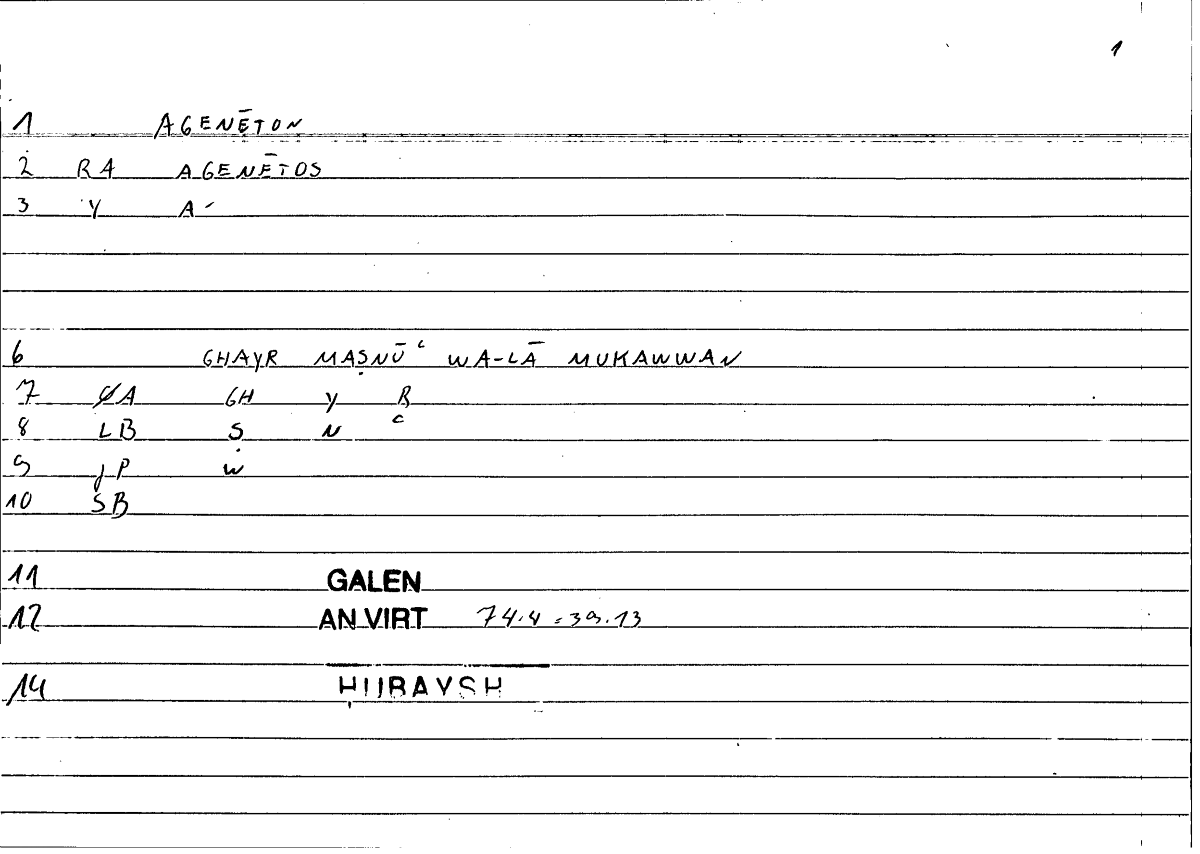 1
1 AGENĒTON
2 RA AGENĒTOS
3 Y A-
6 GHAYR MAṢNŪʿ WA-LĀ MUKAWWAN
7 ØA GH Y R
8 LB Ṣ N ʿ
9 JP W
10 SB
11 GALEN
12 AN VIRT 74.4 = 39.13
14 ḤUBAYSH